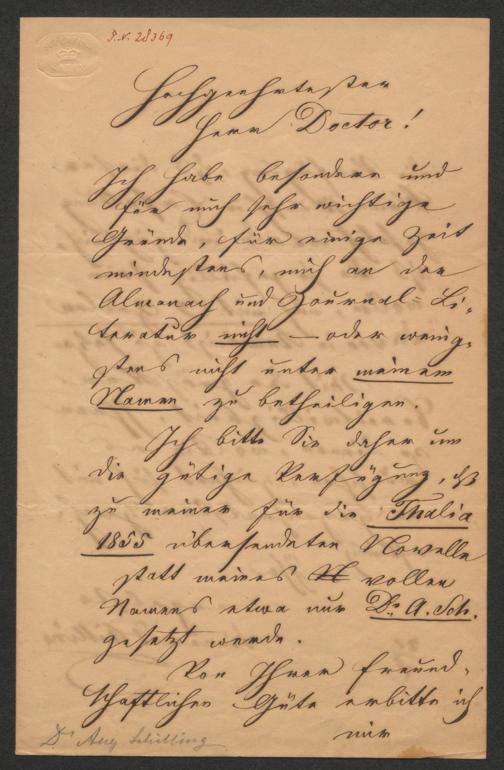 P. N. 28369
Hochgeehrtester
Herr Doctor!
Ich habe besondere und
für mich sehr wichtige
Gründe, für einige Zeit
mindestens, mich an der
Almanach und Journal=Li-
teratur nicht – oder wenig-
stens nicht unter meinem
Namen zu betheiligen.
Ich bitte Sie daher um
die gütige Verfügung, daß
zu meiner für die Thalia
1855 übersendeten Novelle
statt meines vollen
Namens etwa nur Dr. A. Sch.
gesetzt werde.
Von Ihrer freund-
schaftlichen Güte erbitte ich
mir
Dr Aug Schilling